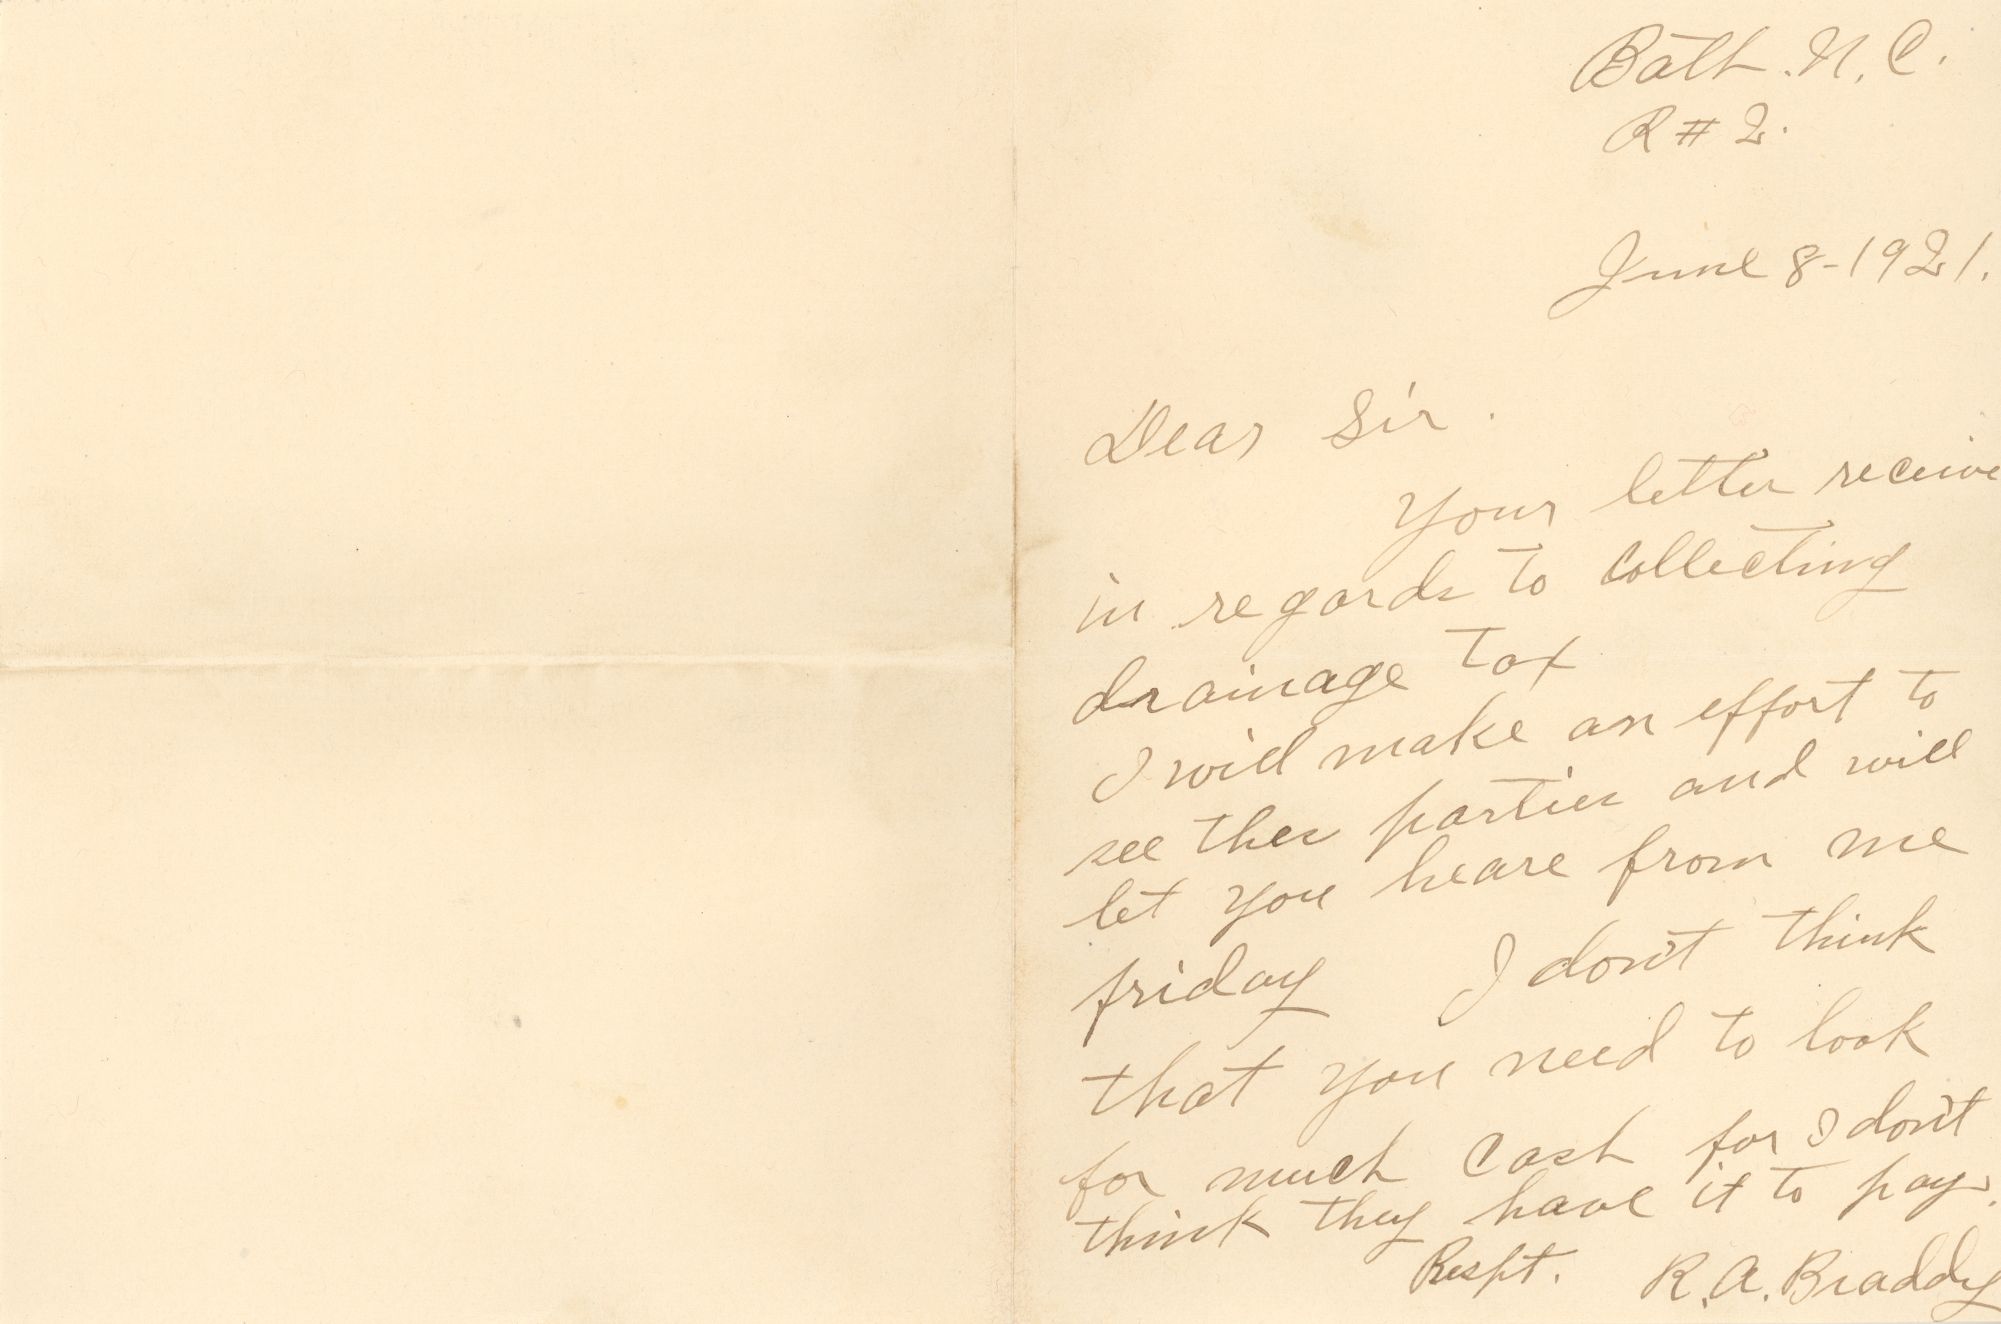 Bath. N. C.
R # 2.
June 8-1921.
Dear Sir.
Your letter receive
in regards to collecting
drainage tax
I will make an effort to
see thes parties and will
let you heare from me
friday I don't think
that you need to look
for much cash for I don't
think they have it to pay.
Respt. R. A. Braddy